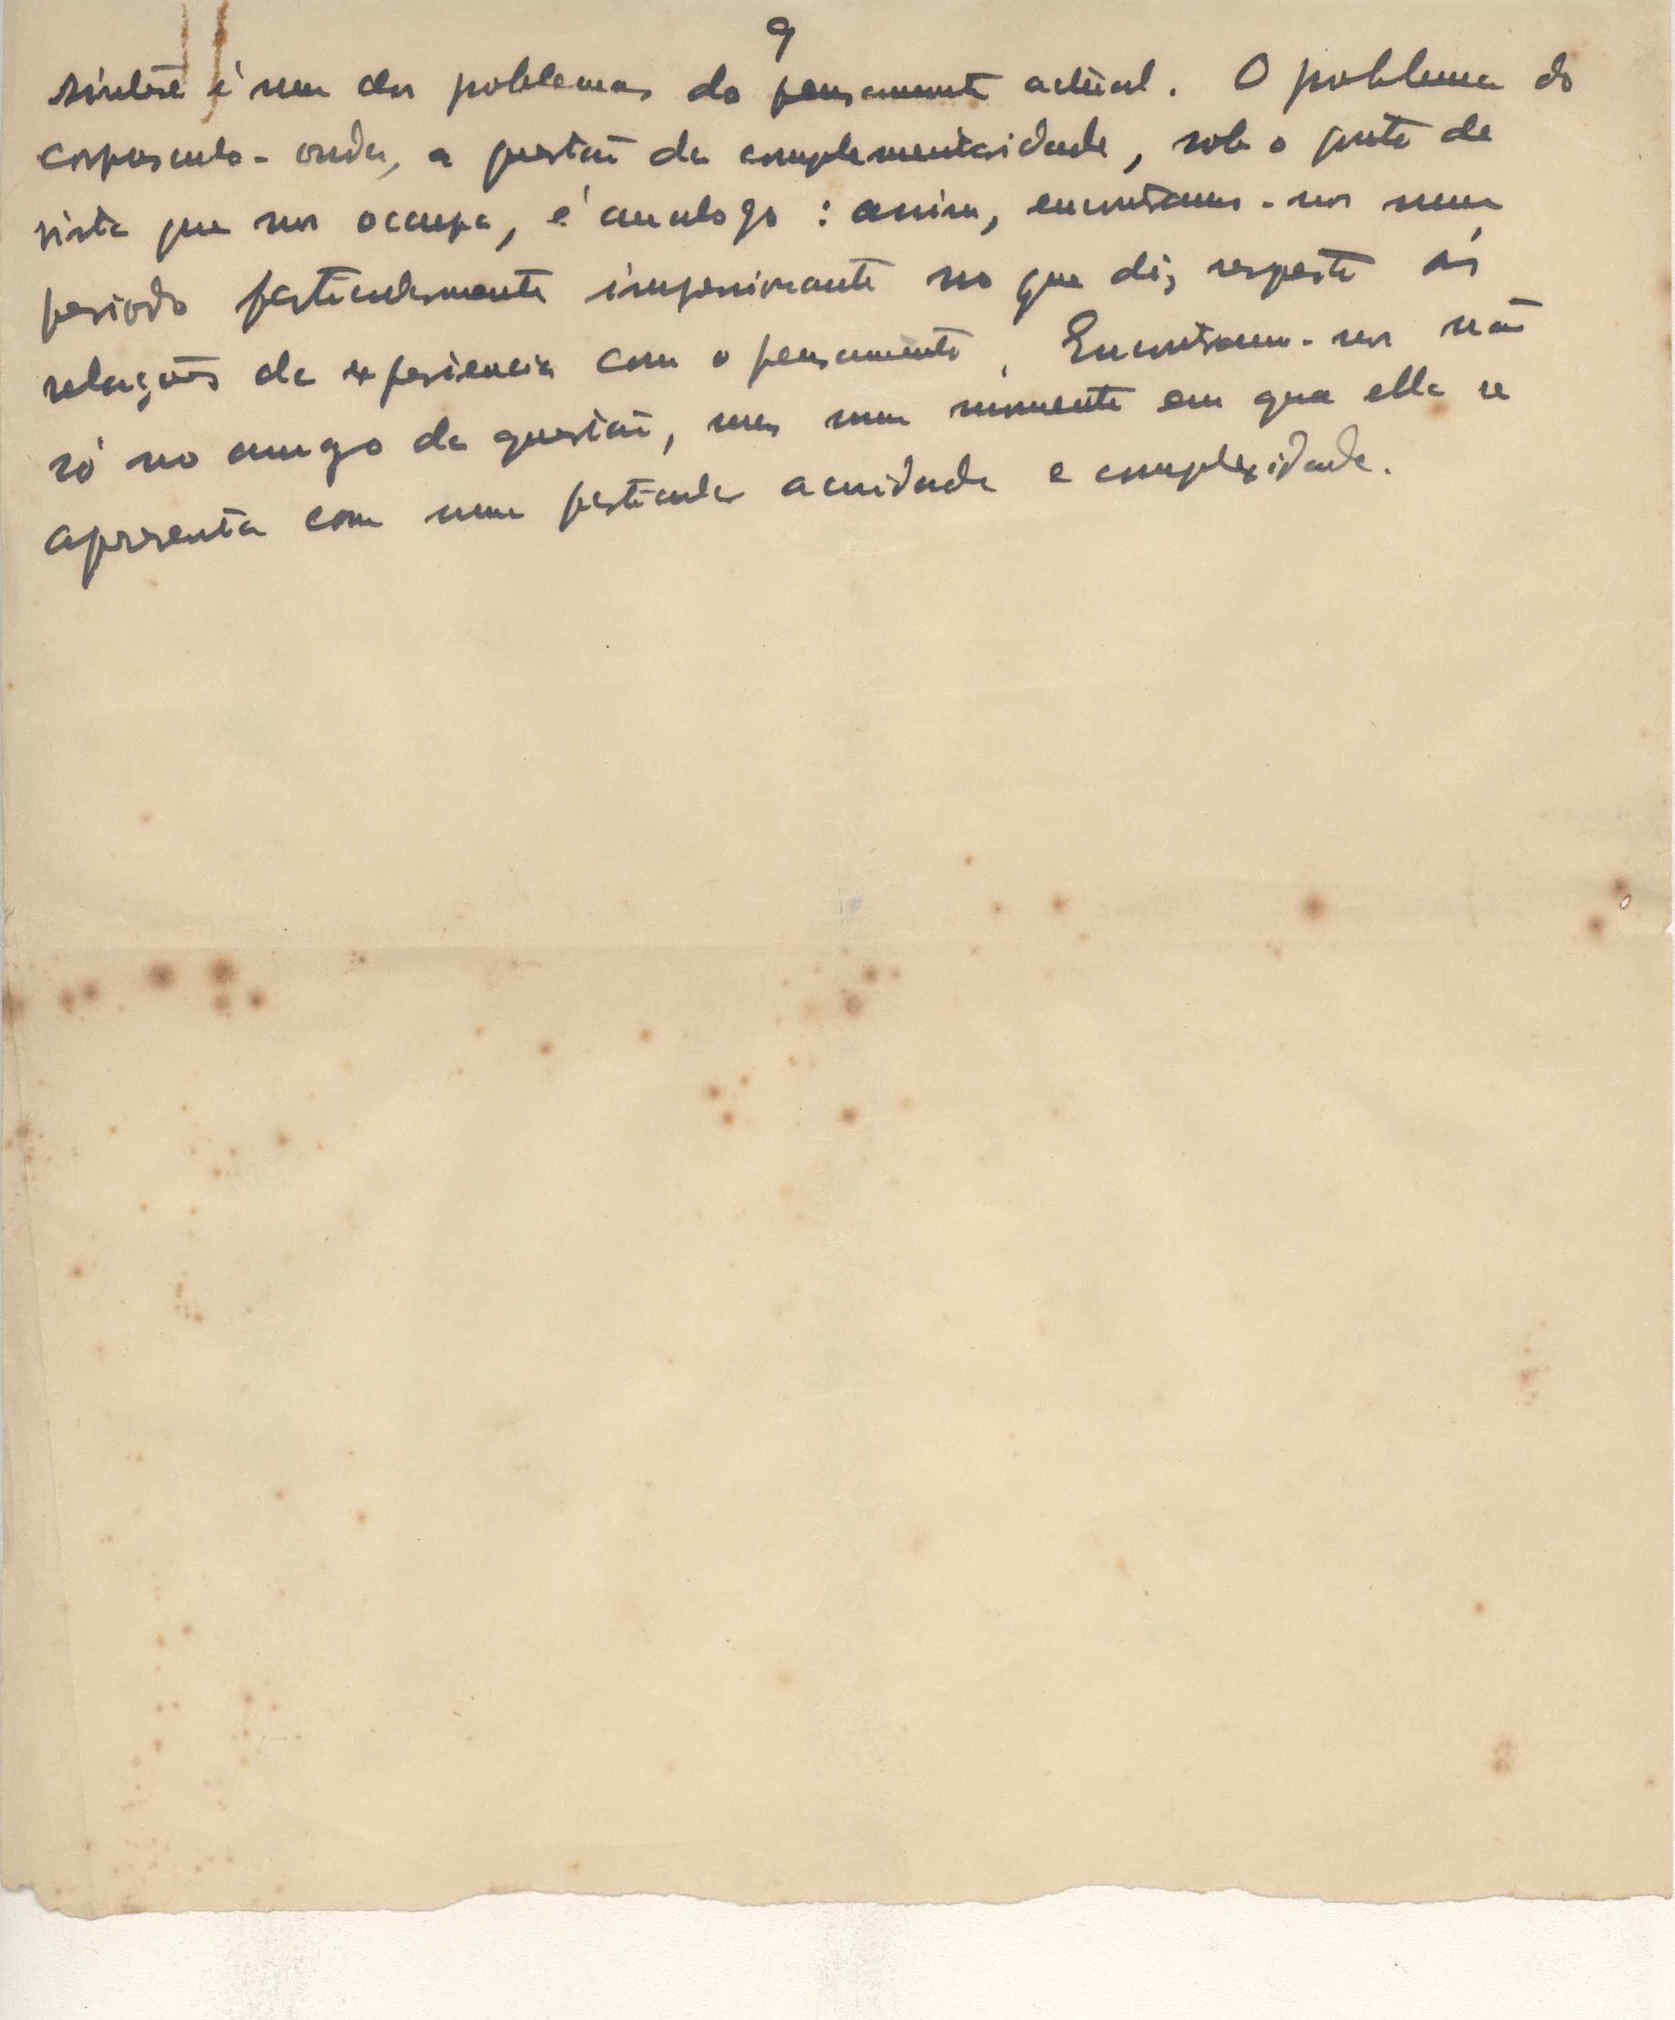 9
sintese é um dos problemas do pensamento actual. O problema do
corpusculo-onda, a questão da complementaridade, sob o ponto de
vista que nos ocupa, é analogo: assim, encontramo-nos num
periodo particularmente impressionante no que diz respeito ás
relações da experiencia com o pensamento. Encontramo-nos não
só no amago da questão, mas num momento em que ella se
apresenta com uma particular acuidade e complexidade.